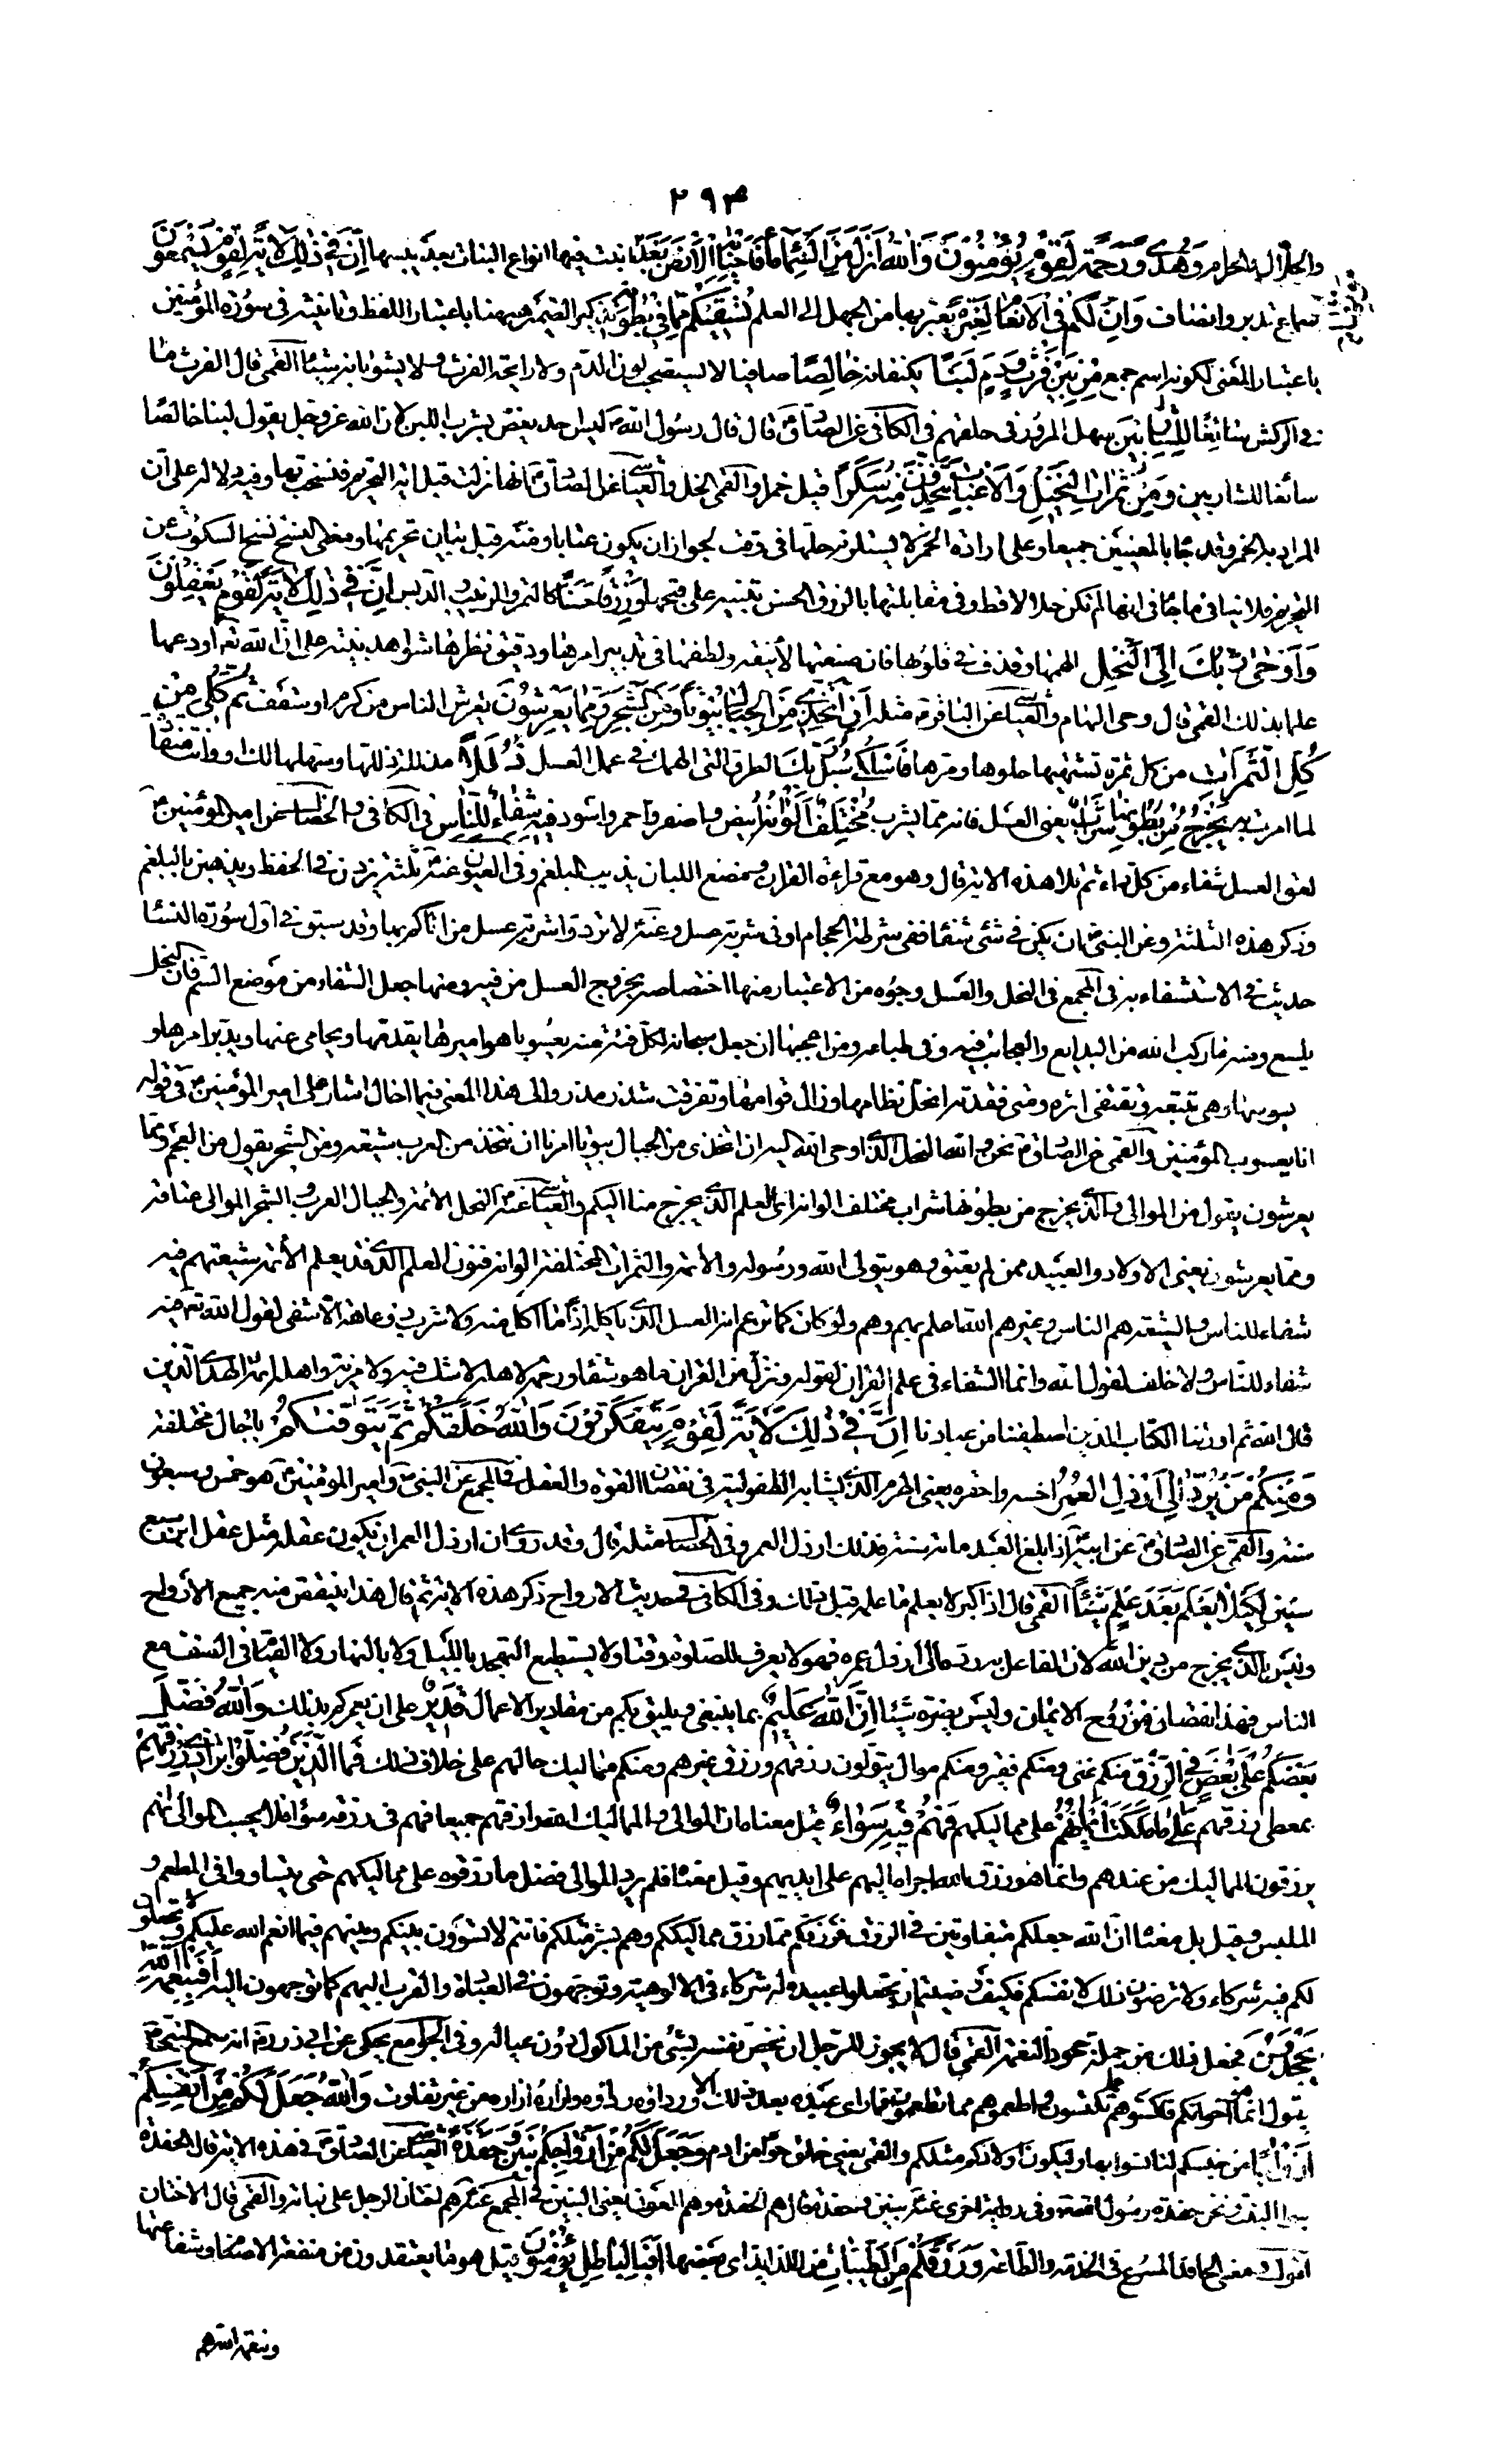 ٢٩٣
والحلال والحرام وَهُدًى وَرَحْمَةً لِقَوْمٍ يُؤْمِنُونَ وَاللهُ أَنْزَلَ مِنَ السَّمَاءِ مَاءً فَأَحْيَا بِهِ الْأَرْضَ بَعْدَ مَوْتِهَا انبت فيها انواع النبات بعد يبسها إِنَّ فِي ذٰلِكَ لَآيَةً لِقَوْمٍ يَسْمَعُونَ
سماع تدبر وانصاف وَإِنَّ لَكُمْ فِي الْأَنْعَامِ لَعِبْرَةً يعبر بها من الجهل الى العلم نُسْقِيكُمْ مِمَّا فِي بُطُونِهِ تذكير الضمير ههنا باعتبار اللفظ وتانيثه في سورة المؤمنين
باعتبار المعنى لكونه اسم جمع مِنْ بَيْنِ فَرْثٍ وَدَمٍ لَبَنًا يكتنفانه خَالِصًا صافيا لا يستصحب لون الدم ولا رايحة الفرث ولا يشوبانه شيئا القمي قال الفرث ما
في الكرش سَائِغًا لِلشَّارِبِينَ سهل المرور في حلقهم في الكافي عن الصادق قال قال رسول الله ليس احد يغص بشرب اللبن لان الله عز وجل يقول لبنا خالصا
سائغا للشاربين وَمِنْ ثَمَرَاتِ النَّخِيلِ وَالْأَعْنَابِ تَتَّخِذُونَ مِنْهُ سَكَرًا قيل خمرا والقمي الخل والعياشي عن الصادق انها نزلت قبل اية التحريم فنسخت بها وفيه دلالة على ان
المراد به الخمر وقد جاء بالمعنيين جميعا وعلى ارادة الخمر لا يستلزم حلها في وقت لجواز ان يكون عتابا ومنة قبل بيان تحريمها ومعنى النسخ نسخ السكوت عن
التحريم فلا ينافي ما جاء في انها لم تكن حلالا قط وفي مقابلتها بالرزق الحسن تنبيه على قبحها وَرِزْقًا حَسَنًا كالتمر والزبيب والدبس إِنَّ فِي ذٰلِكَ لَآيَةً لِقَوْمٍ يَعْقِلُونَ
وَأَوْحَىٰ رَبُّكَ إِلَى النَّحْلِ الهمها وقذف في قلوبها فان صنعتها الأنيقة ولطفها في تدبير امرها ودقيق نظرها شواهد بينة على ان الله تعم اودعها
علما بذلك القمي قال وحي الهام والعياشي عن الباقر مثله أَنِ اتَّخِذِي مِنَ الْجِبَالِ بُيُوتًا وَمِنَ الشَّجَرِ وَمِمَّا يَعْرِشُونَ يعرش الناس من كرم او سقف ثُمَّ كُلِي مِنْ
كُلِّ الثَّمَرَاتِ من كل ثمرة تشتهيها حلوها ومرها فَاسْلُكِي سُبُلَ رَبِّكِ الطرق التي الهمك في عمل العسل ذُلُلًا مذللة ذللها وسهلها لك او وانت منقادة
لما امرت به يَخْرُجُ مِنْ بُطُونِهَا شَرَابٌ يعني العسل فانه مما يشرب مُخْتَلِفٌ أَلْوَانُهُ ابيض واصفر واحمر واسود فِيهِ شِفَاءٌ لِلنَّاسِ في الكافي والخصال عن امير المؤمنين
لعق العسل شفاء من كل داء ثم تلا هذه الاية قال وهو مع قراءة القران ومضغ اللبان يذيب البلغم وفي العيون عنه ثلثة يزدن في الحفظ ويذهبن بالبلغم
وذكر هذه الثلثة وعن النبي ان يكن في شئ شفاء ففي شرطة الحجام او في شربة عسل وعنه لا ترد واشربة عسل من اتاكم بها وقد سبق في اول سورة النساء
حديث في الاستشفاء به في المجمع في النحل والعسل وجوه من الاعتبار منها اختصاصه بخروج العسل من فيه ومنها جعل الشفاء من موضع السم فان النحل
يلسع ومنه ما ركب الله من البدايع والعجائب فيه وفي طباعه ومن اعجبها ان جعل سبحانه لكل فئة منه يعسوبا هو اميرها يقدمها ويحامي عنها ويدبر امرها و
يسوسها وهي تتبعه وتقتفي اثره ومتى فقدته انحل نظامها وزال قوامها وتفرقت شذر مذر والى هذا المعنى فيما اخال اشار على امير المؤمنين في قوله
انا يعسوب المؤمنين والقمي عن الصادق نحن والله النحل الذي اوحى الله اليه ان اتخذي من الجبال بيوتا امرنا ان نتخذ من العرب شيعة ومن الشجر يقول من العجم ومما
يعرشون يقول من الموالي والذي يخرج من بطونها شراب مختلف الوانه اي العلم الذي يخرج منا اليكم والعياشي عنه النحل الأئمة والجبال العرب والشجر الموالي عتاقة
ومما يعرشون يعني الاولاد والعبيد ممن لم يعتق وهو يتولى الله ورسوله والأئمة والثمرات المختلفة الوانه فنون العلم الذي قد يعلم الأئمة شيعتهم فيه
شفاء للناس والشيعة هم الناس وغيرهم الله اعلم بهم ما هم ولو كان كما تزعم انه العسل الذي ياكله الناس اذا ما اكل منه ولا شرب ذو عاهة الا شفي لقول الله تعم فيه
شفاء للناس ولا خلف لقول الله وانما الشفاء في علم القران لقوله وننزل من القران ما هو شفاء ورحمة لاهله لا شك فيه ولا مرية واهله ائمة الهدى الذين
قال الله ثم اورثنا الكتاب الذين اصطفينا من عبادنا إِنَّ فِي ذٰلِكَ لَآيَةً لِقَوْمٍ يَتَفَكَّرُونَ وَاللهُ خَلَقَكُمْ ثُمَّ يَتَوَفَّيٰكُمْ باجال مختلفة
وَمِنْكُمْ مَنْ يُرَدُّ إِلَىٰ أَرْذَلِ الْعُمُرِ اخسه واحقره يعني الهرم الذي يشابه الطفولية في نقصان القوة والعقل في المجمع عن النبي وامير المؤمنين هو خمس وسبعون
سنة والقمي عن الصادق عن ابيه اذا بلغ العبد مائة سنة فذلك ارذل العمر وفي الخصال مثله قال وقد روى ان ارذل العمر ان يكون عقله مثل عقل ابن سبع
سنين لِكَيْلَا يَعْلَمَ بَعْدَ عِلْمٍ شَيْئًا القمي قال اذا كبر لا يعلم ما علمه قبل ذلك وفي الكافي في حديث الارواح ذكر هذه الاية ثم قال فهذا ينتقص منه جميع الأرواح
وليس بالذي يخرج من دين الله لان الفاعل به رده الى ارذل عمره فهو لا يعرف للصلوة وقتا ولا يستطيع التهجد بالليل ولا بالنهار ولا القيام في الصف مع
الناس فهذا نقصان من روح الايمان وليس يضره شيئا إِنَّ اللهَ عَلِيمٌ بما ينبغي ويليق بكم من مقادير الاعمال قَدِيرٌ على ان يعمركم بذلك وَاللهُ فَضَّلَ
بَعْضَكُمْ عَلَىٰ بَعْضٍ فِي الرِّزْقِ فمنكم غني ومنكم فقير ومنكم موال يتولون رزقهم ورزق غيرهم ومنكم مماليك حالهم على خلاف ذلك فَمَا الَّذِينَ فُضِّلُوا بِرَادِّي رِزْقِهِمْ
بمعطي رزقهم عَلَىٰ مَا مَلَكَتْ أَيْمَانُهُمْ على مماليكهم فَهُمْ فِيهِ سَوَاءٌ قيل معناه ان الموالي والمماليك الله رازقهم جميعا فهم في رزقه سواء فلا يحسب الموالي انهم
يرزقون المماليك من عندهم وانما هو رزق الله اجراه اليهم على ايديهم وقيل معناه فلم يرد الموالي فضل ما رزقوه على مماليكهم حتى يتساووا في المطعم و
الملبس وقيل بل معناه ان الله جعلكم متفاوتين في الرزق فرزقكم مما رزق مماليككم وهم بشر مثلكم فانتم لا تسوون بينكم وبينهم فيما انعم الله عليكم ولا تجعلون
لكم فيه شركاء ولا ترضون ذلك لانفسكم فكيف رضيتم ان تجعلوا عبيده له شركاء في الالوهية وتوجهون في العبادة والقرب اليهم كما توجهون اليه أَفَبِنِعْمَةِ اللهِ
يَجْحَدُونَ فجعل ذلك من جملة جحود النعمة القمي قال لا يجوز للرجل ان يخص نفسه بشئ من الماكول دون عياله وفي الجوامع يحكى عن ابي ذر ره انه سمع النبي
يقول انما هم اخوانكم فاكسوهم مما تكتسون واطعموهم مما تطعمون فما راى عبده بعد ذلك الا ورداؤه رداؤه وازاره ازاره من غير تفاوت وَاللهُ جَعَلَ لَكُمْ مِنْ أَنْفُسِكُمْ
أَزْوَاجًا من جنسكم لتانسوا بها وليكون اولادكم مثلكم والقمي يعني خلق حوا من ادم وَجَعَلَ لَكُمْ مِنْ أَزْوَاجِكُمْ بَنِينَ وَحَفَدَةً العياشي عن الصادق في هذه الاية قال الحفدة
بنو البنت ونحن حفدة رسول الله وفي رواية اخرى عنه بنين وحفدة قال هم الحفدة وهم العون يعني البنين في المجمع عنه هم اختان الرجل على بناته والقمي قال الاختان
اقول ومعنى الحافد المسرع في الخدمة والطاعة وَرَزَقَكُمْ مِنَ الطَّيِّبَاتِ من اللذايذ اي بعضها أَفَبِالْبَاطِلِ يُؤْمِنُونَ قيل هو ما يعتقدون من منفعة الاصنام وشفاعتها
وبنعمة الله هم